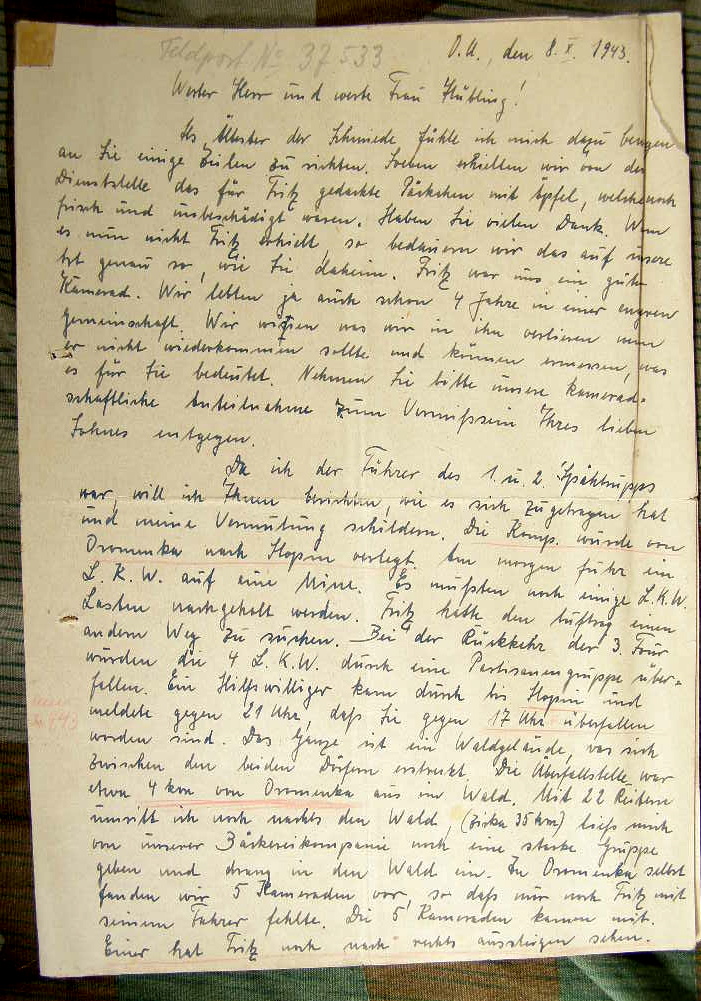 Feldpost No 37 533
O.U., den 8. X. 1943.
Werter Herr und werte Frau Hübling!
Als Ältester der Schmiede fühle ich mich dazu bewogen
an Sie einige Zeilen zu richten. Soeben erhielten wir von der
Dienststelle das für Fritz gedachte Päckchen mit Äpfel, welche noch
frisch und unbeschädigt waren. Haben Sie vielen Dank. Wenn
es nun nicht Fritz erhielt, so bedauern wir das auf unsere
Art genau so, wie Sie daheim. Fritz war uns ein guter
Kamerad. Wir lebten ja auch schon 4 Jahre in einer engeren
Gemeinschaft. Wir wissen was wir in ihn verlieren wenn
er nicht wiederkommen sollte und können ermessen, was
es für Sie bedeutet. Nehmen Sie bitte unsere kamerad-
schaftliche Anteilnahme zum Vermißsein Ihres lieben
Sohnes entgegen.
Da ich der Führer des 1. u. 2. Spähtrupps
war, will ich Ihnen berichten, wie es sich zugetragen hat
und meine Vermutung schildern. Die Komp. wurde von
Oromenka nach Slopin verlegt. Am morgen fuhr ein
L.K.W. auf eine Mine. Es mußten noch einige L.K.W
Lasten nachgeholt werden. Fritz hatte den Auftrag einen
andern Weg zu suchen. Bei der Rückkehr der 3. Fuhr
wurden die 4 L.K.W. durch eine Partisanengruppe über-
fallen. Ein Hilfswilliger kam durch bis Slopin und
meldete gegen 21 Uhr, daß Sie gegen 17 Uhr überfallen
worden sind. Das Ganze ist ein Waldgelände, was sich
zwischen den beiden Dörfern erstreckt. Die Überfallstelle war
etwa 4 km von Oromenka aus im Wald. Mit 22 Reitern
umritt ich noch nachts den Wald, (zirka 35 km) ließ mich
von unserer Bäckereikompanie noch eine starke Gruppe
geben und drang in den Wald ein. In Oromenka selbst
fanden wir 5 Kameraden vor, so daß nur noch Fritz mit
seinem Fahrer fehlte. Die 5 Kameraden kamen mit.
Einer hat Fritz noch nach rechts aussteigen sehen.